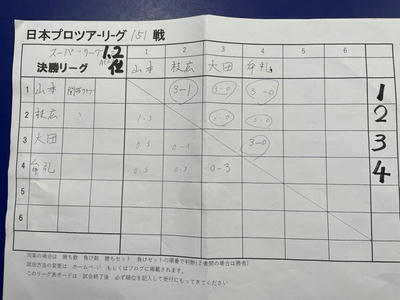 日本プロツアーリーグ 151 戦
スーパーリーグ 1.2位
決勝リーグ 1 2 3 4 5 6
山本 枝広 大田 牟礼
1 山本 3-1 3-0 3-0 1
2 枝広 〃 1-3 3-0 3-0 2
3 大田 0-3 0-3 3-0 3
4 牟礼 0-3 0-3 0-3 4
5
6
同率の場合は 勝ち数 負け数 勝ちセット 負けセットの順番で判断(2者間の場合は勝者)
試合方法の変更は ホームページ もしくはブログに掲載されます。
このリーグ表ボードは 試合終了後 必ず順位を記入して受付にもってきてください